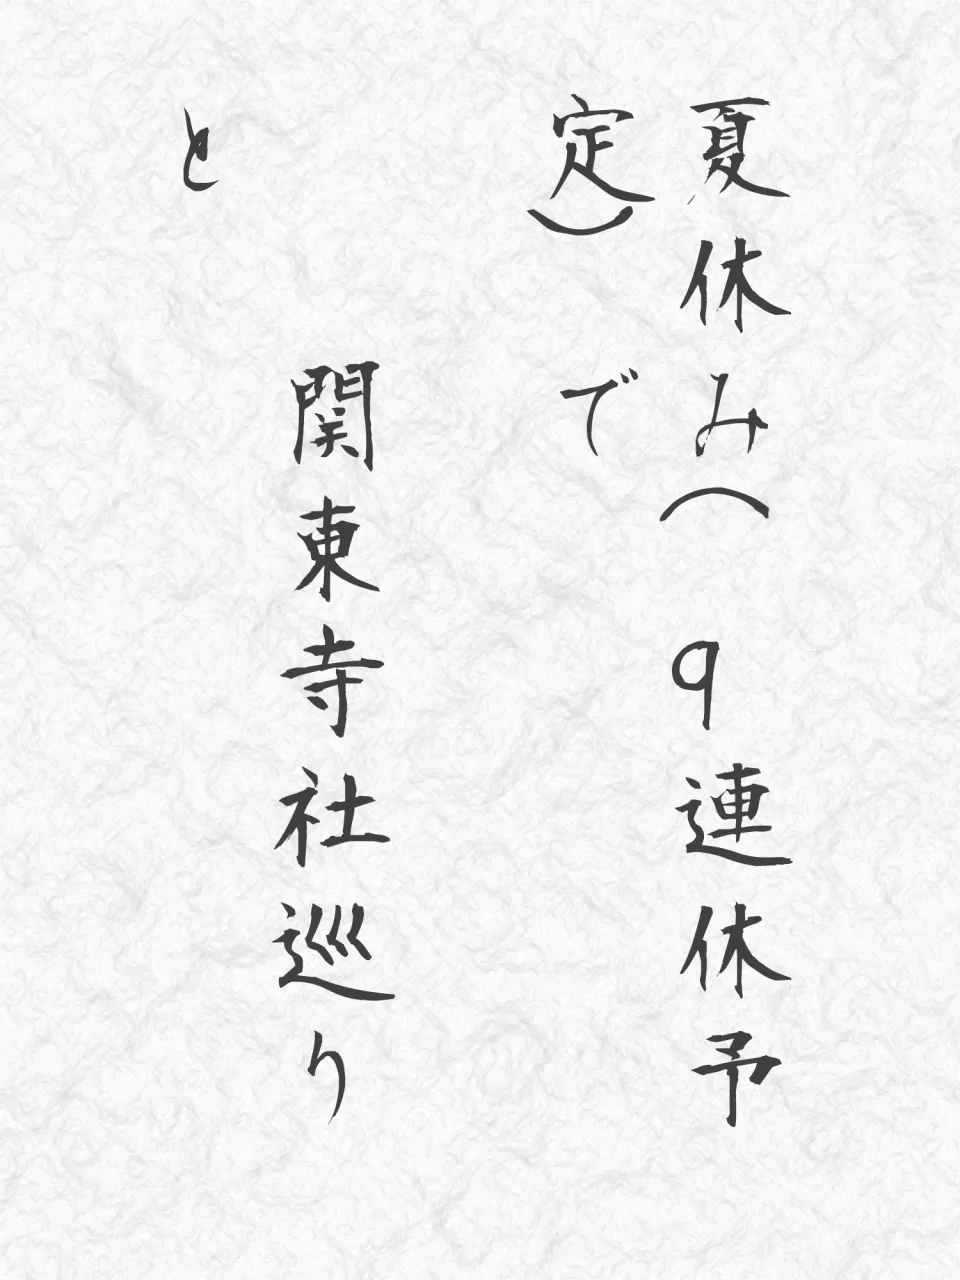 夏休み（9連休予
定）で
関東寺社巡り
と